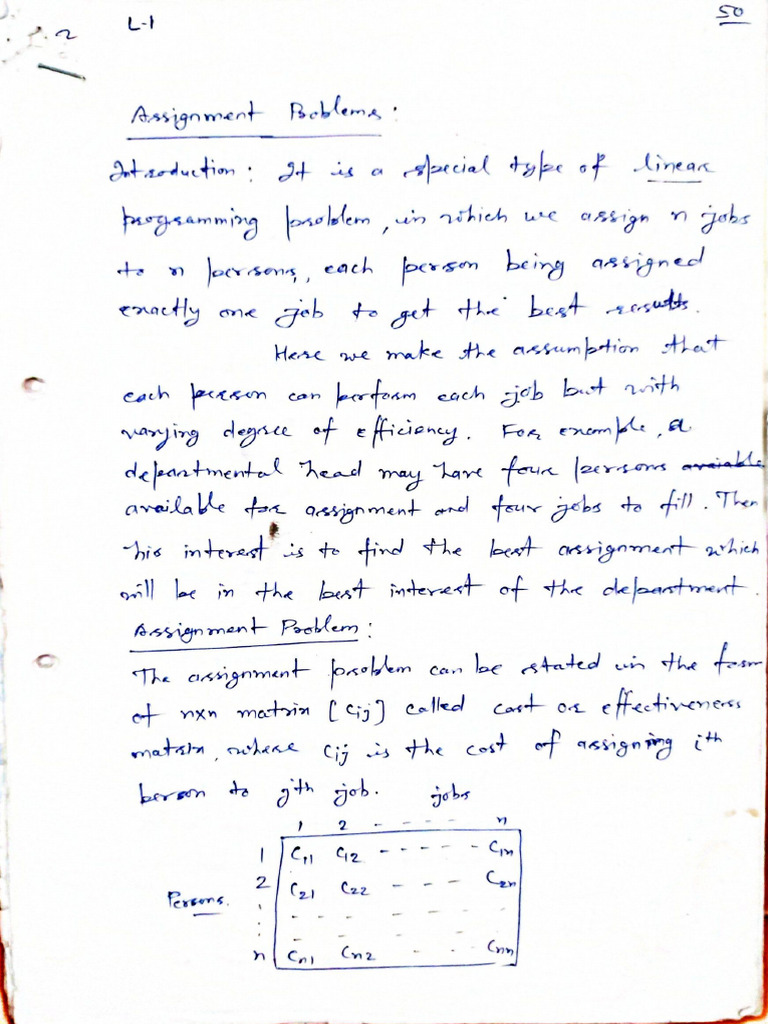 2 L-1 50
Assignment Problems:
Introduction: It is a special type of linear
programming problem, in which we assign n jobs
to n persons, each person being assigned
exactly one job to get the best results.
Here we make the assumption that
each person can perform each job but with
varying degree of efficiency. For example, a
departmental head may have four persons avaiable
available for assignment and four jobs to fill. Then
his interest is to find the best assignment which
will be in the best interest of the department.
Assignment Problem:
The assignment problem can be stated in the form
of nxn matrix [cij] called cost or effectiveness
matrix, where cij is the cost of assigning ith
person to jth job. jobs
1 2 - - - - - n
1 C11 C12 - - - - - - C1n
2 C21 C22 - - - C2n
Persons.
n Cn1 Cn2 - - - Cnn